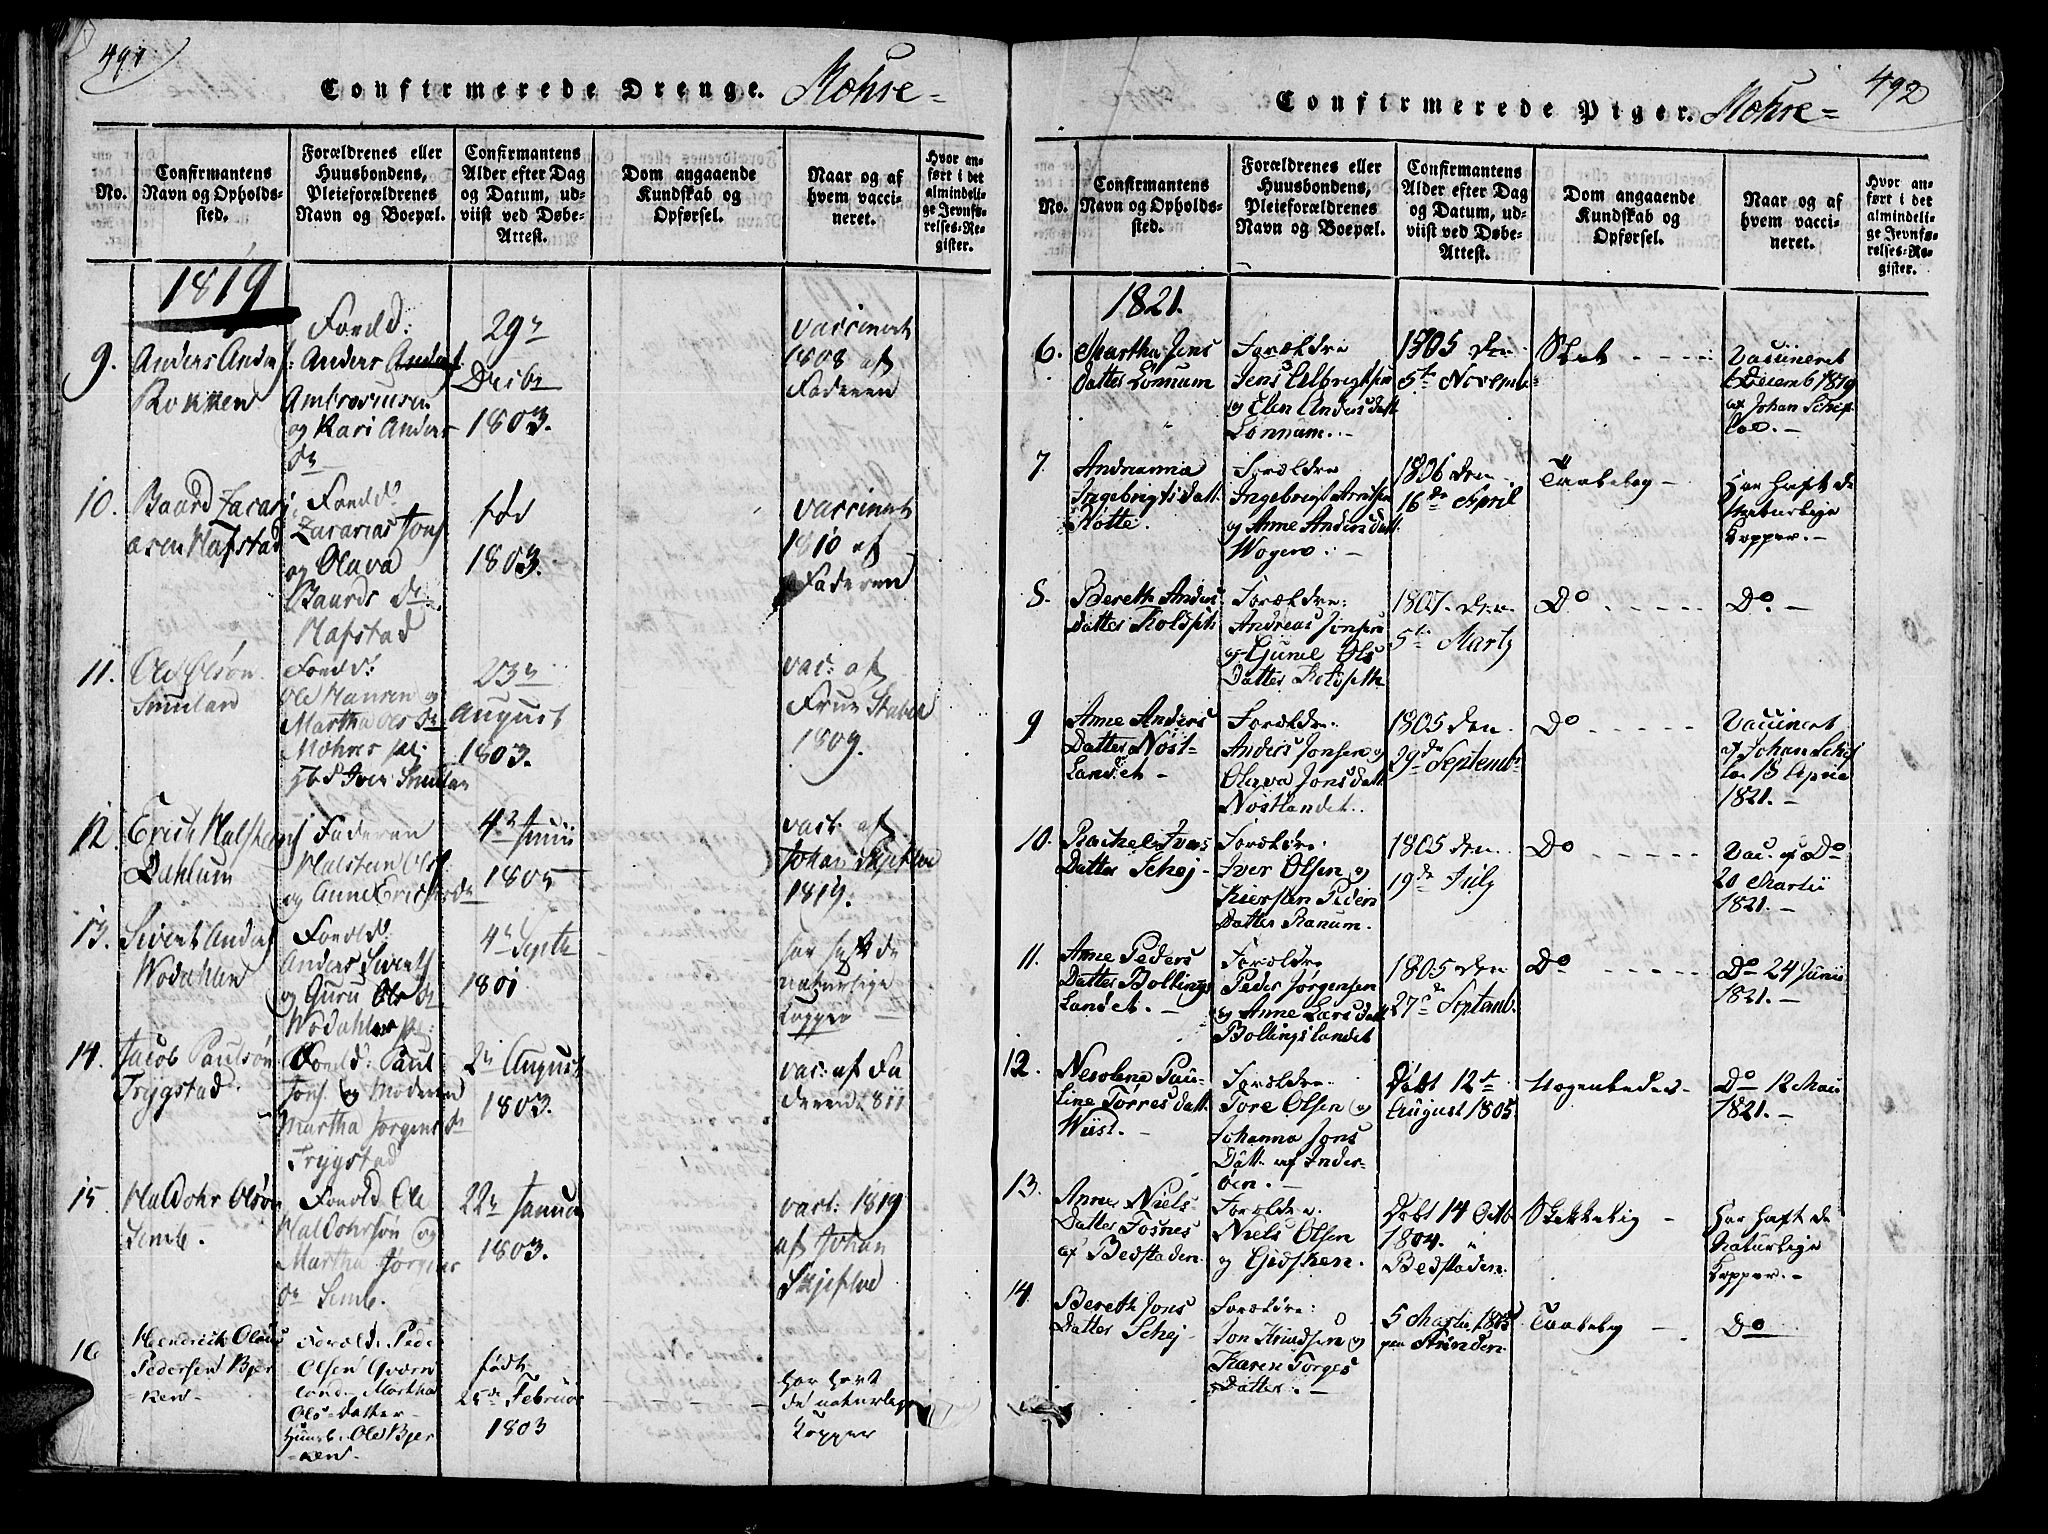 491
Confirmerede Drenge. Mæhre=
No.
Confirmantens
Navn og Opholds-
sted.
Forældrenes eller
Huusbondens,
Pleieforældrenes
Navn og Boepæl.
Confirmantens
Alder efter Dag
og Datum, ud-
viist ved Døbe-
Attest.
Dom angaaende
Kundskab og
Opførsel.
Naar og af
hvem vacci-
neret.
Hvor an-
ført i det
almindeli-
ge Jevnfø-
relses-Re-
gister.
1819
9.
Anders Anders
Rokken
Foreld:
Anders
Ambrosiusen
og Kari Anders
Dr
29r
Desbr
1803.
vaccineret
1808 af
Faderen
10.
Baard Zacari
asen Hafstad
Foreld:
Zacarias Jons
og Olava
Baards Dr
Hafstad
fød
1803.
vaccineret
1810 af
Faderen
11.
Ole Olsøn
Smulan
Foreld:
Ole Hansen og
Martha Ols Dr
Mæhres
Iver Smulan
23r
August
1803.
vac: af
Frue Stabel
1809.
12.
Erich Halsteins
Dahlum
Faderen
Halstein Ols
og Anne Erichs Dr
4r Junii
1805
vacc. af
Johan Skjefloe
1819.
13.
Sivert Anders
Wodahlen
Foreld:
Anders Siverts
og Guru Ols Dr
Wodahlen
4r Septbr
1801
har haft de
naturlige
Kopper
14.
Jacob Paulsøn
Trygstad.
Foreld: Paul
Jons og Moderen
Martha Jørgens Dr
Trygstad
2r August
1803.
vac: af Fa
deren 1811
15
Haldohr Olsøn
Semb.
Foreld Ole
Haldohrsøn og
Martha Jørgens
Dr Semb.
22r Januar
1803.
vacc: 1819
af Johan
Skjefloe
16
Hendrich Olaus
Pedersen Bjer
ken-
Foreld: Peder
Olsen Qværn
Martha
Ols-Datter-
Huusb. Ole Bjer
ken.
født
25de Februar
1803
har havt
de naturlige
Kopper
492
Confirmerede Piger. Mæhre=
No.
Confirmantens
Navn og Opholds-
sted.
Forældrenes eller
Huusbondens,
Pleieforældrenes
Navn og Boepæl.
Confirmantens
Alder efter Dag
og Datum, ud-
viist ved Døbe-
Attest.
Dom angaaende
Kundskab og
Opførsel.
Naar og af
hvem vacci-
neret.
Hvor an-
ført i det
almindeli-
ge Jevnfø-
relses-Re-
gister.
1821.
6.
Martha Jens
Datter Lønnum
Forældre
Jens Elbrigtsen
og Elen Anders Datt
Lønnum.-
1805 den
5te Novembr
Slet
Vaccineret
Decemb 1819
af Johan Schief
loe.-
7.
Andrianna
Ingebrigts Datt.
Røtte.
Forældre
Ingebrigt Arntsen
og Anne Anders Datt.
Wogero.-
1806 den
16de April
Taalelig -
Har haft de
Naturlige
Kopper.-
8.
Bereth Anders
Datter Roldseth
Forældre:
Andreas Jonsen
og Gunel Ols
Datter Roldseth
1807. den
5te Marty
Do
Do. -
9
Anne Anders
Datter Nøst-
landet -
Forældre:
Anders Jonsen og
Olava Jons Datt
Nøstlandet.
1805 den
29de Septembr
Do
Vaccineret
af Johan Schief
loe 13 April
1821. -
10.
Rachel Ivers
Datter Schej-
Forældre:
Iver Olsen og
Kiersten Peders
Datter Ranum.
1805 den
19de July
Do
Vac. af Do
20 Martii
1821. -
11.
Anne Peders
Datter Bollings
Landet. -
Forældre
Peder Jørgensen
og Anne Lars Datt
Bollingslandet
1805 den
27de Septemb.
Do
Do 24 Junii
1821. -
12.
Nicoline Pau-
line Torres Datt.
Wiist. -
Forældre:
Tore Olsen og
Johanna Jons
Datt. af Inder-
øen. -
Døbt 12te
August 1805
Nogenledes-
Do 12 Maii
1821. -
13.
Anne Niels-
Datter Fosnes
af Bedstaden.
Forældre:
Niels Olsen
og Gidsken.
Døbt 14 Octb
1804.
Bedstaden.
Skikkelig -
Har haft de
Naturlige
Kopper. -
14.
Bereth Jons
Datter Schej-
Forældre:
Jon Knudsen og
Karen Torges
Datter. -
5 Martii 1805
paa Strinden.
Taalelig -
Do